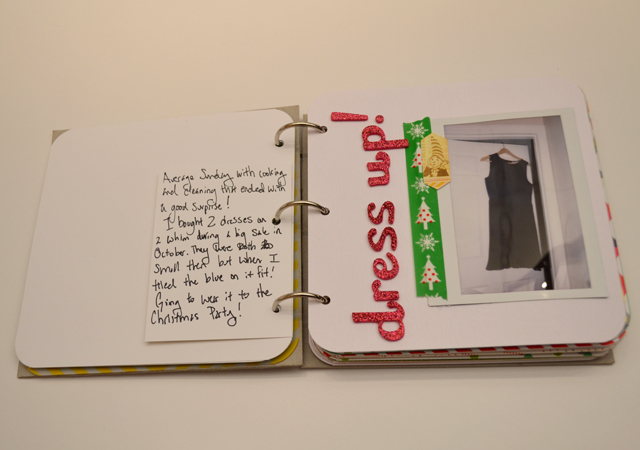 Average Sunday with cooking
and cleaning that ended with
a good surprise!
I bought 2 dresses on
a whim during a big sale in
October. They were both
small then but when I
tried the blue on it fit!
Going to wear it to the
Christmas Party!
dress up!